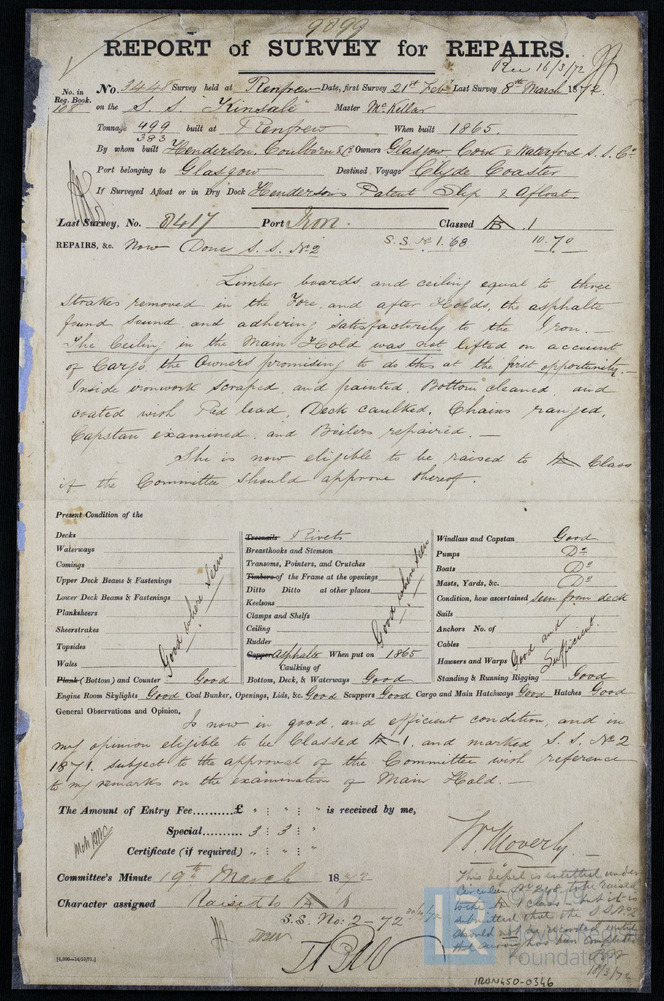 9899
REPORT of SURVEY for REPAIRS.
Rec 16/3/72
No. in Reg. Book.
168
No. 3448 Survey held at Renfrew Date, first Survey 21st Feby Last Survey 8th March 1872
on the S. S. "Kinsale" Master McKellar
Tonnage 499 built at Renfrew When built 1865.
383
By whom built Henderson, Coulborn & Co Owners Glasgow Cork & Waterford S. S. Co
Port belonging to Glasgow Destined Voyage Clyde Coaster
If Surveyed Afloat or in Dry Dock Hendersons Patent Slip & Afloat.
Last Survey, No. 8417 Port Iron. Classed 1
REPAIRS, &c. Now Done S. S. No 2 S. S. No 1. 68 10.70
Limber boards and ceiling equal to three
strakes removed in the Fore and after Holds, the asphalte
found sound and adhering satisfactorily to the Iron.
The Ceiling in the Main Hold was not lifted on account
of Cargo the Owners promising to do this at the first opportunity.—
Inside ironwork scraped and painted, Bottom cleaned and
coated with Red lead, Deck caulked, Chains ranged,
Capstan examined and Boilers repaired.—
She is now eligible to be raised to Class
if the Committee should approve thereof.
Present Condition of the
Decks
Waterways
Comings
Upper Deck Beams & Fastenings
Lower Deck Beams & Fastenings
Planksheers
Sheerstrakes
Topsides
Wales
Good where seen
Plank (Bottom) and Counter Good
Treenails Rivets
Breasthooks and Stemson
Transoms, Pointers, and Crutches
Timbers of the Frame at the openings
Ditto Ditto at other places
Keelsons
Clamps and Shelfs
Ceiling
Rudder
Good when seen
Copper Asphalte When put on 1865
Caulking of
Bottom, Deck, & Waterways Good
Windlass and Capstan Good
Pumps Do
Boats Do
Masts, Yards, &c. Do
Condition, how ascertained seen from deck
Sails
Anchors No. of
Cables
Hawsers and Warps
Good and Sufficient
Standing & Running Rigging Good
Engine Room Skylights Good Coal Bunker, Openings, Lids, &c. Good Scuppers Good Cargo and Main Hatchways Good Hatches Good
General Observations and Opinion,
Is now in good and efficient condition, and in
my opinion eligible to be Classed 1. and marked S. S. No 2
1871. subject to the approval of the Committee with reference
to my remarks on the examination of Main Hold.—
The Amount of Entry Fee..........£ " : " : " is received by me,
Special.......... 3 : 3 : "
Certificate (if required) " : " : "
Wm Moverly
Committee's Minute 19th March 1872
Character assigned Raised to A
S.S. No: 2-72
This vessel is entitled under
circular No 240 to be raised
to the class but it is
submitted that the S.S. No 2
should not be recorded until
the survey has been completed
18/3/72
[4,000—24/10/71.]
IRON450-0346
LR
Lloyd's Register
Foundation